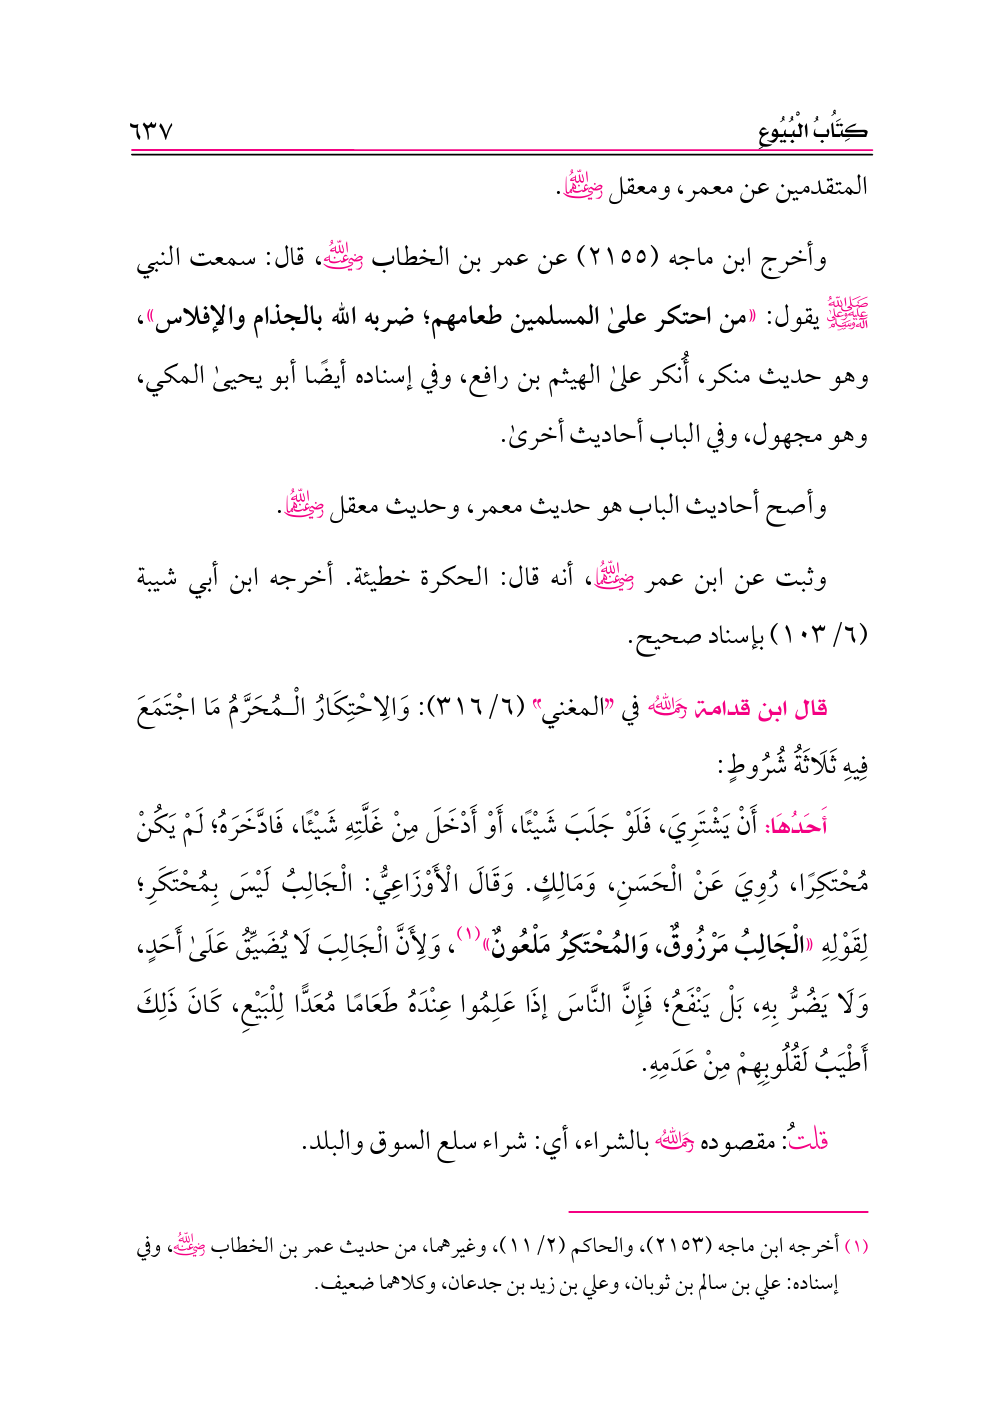 كِتَابُ الْبُيُوعِ ٦٣٧
المتقدمين عن معمر، ومعقل رضي الله عنهما.
وأخرج ابن ماجه (٢١٥٥) عن عمر بن الخطاب رضي الله عنه، قال: سمعت النبي
ﷺ يقول: «من احتكر علىٰ المسلمين طعامهم؛ ضربه الله بالجذام والإفلاس»،
وهو حديث منكر، أُنكر علىٰ الهيثم بن رافع، وفي إسناده أيضًا أبو يحيىٰ المكي،
وهو مجهول، وفي الباب أحاديث أخرىٰ.
وأصح أحاديث الباب هو حديث معمر، وحديث معقل رضي الله عنهما.
وثبت عن ابن عمر رضي الله عنهما، أنه قال: الحكرة خطيئة. أخرجه ابن أبي شيبة
(٦/ ١٠٣) بإسناد صحيح.
قال ابن قدامة رحمه الله في "المغني" (٦/ ٣١٦): وَالِاحْتِكَارُ الْـمُحَرَّمُ مَا اجْتَمَعَ
فِيهِ ثَلَاثَةُ شُرُوطٍ:
أَحَدُهَا: أَنْ يَشْتَرِيَ، فَلَوْ جَلَبَ شَيْئًا، أَوْ أَدْخَلَ مِنْ غَلَّتِهِ شَيْئًا، فَادَّخَرَهُ؛ لَمْ يَكُنْ
مُحْتَكِرًا، رُوِيَ عَنْ الْحَسَنِ، وَمَالِكٍ. وَقَالَ الْأَوْزَاعِيُّ: الْجَالِبُ لَيْسَ بِمُحْتَكَرِ؛
لِقَوْلِهِ «الْجَالِبُ مَرْزُوقٌ، وَالمُحْتَكِرُ مَلْعُونٌ»(١)، وَلِأَنَّ الْجَالِبَ لَا يُضَيِّقُ عَلَىٰ أَحَدٍ،
وَلَا يَضُرُّ بِهِ، بَلْ يَنْفَعُ؛ فَإِنَّ النَّاسَ إذَا عَلِمُوا عِنْدَهُ طَعَامًا مُعَدًّا لِلْبَيْعِ، كَانَ ذَلِكَ
أَطْيَبُ لَقُلُوبِهِمْ مِنْ عَدَمِهِ.
قلتُ: مقصوده رحمه الله بالشراء، أي: شراء سلع السوق والبلد.
(١) أخرجه ابن ماجه (٢١٥٣)، والحاكم (٢/ ١١)، وغيرهما، من حديث عمر بن الخطاب رضي الله عنه، وفي
إسناده: علي بن سالم بن ثوبان، وعلي بن زيد بن جدعان، وكلاهما ضعيف.